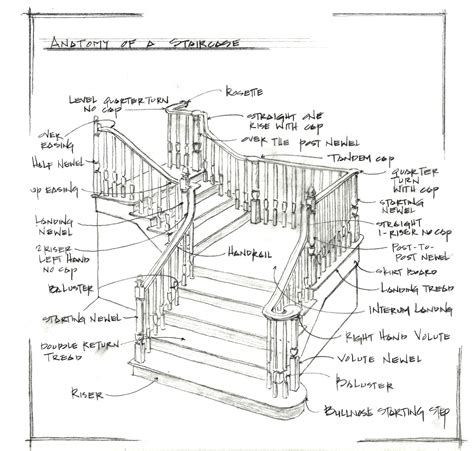 ANATOMY OF A STAIRCASE
LEVEL QUARTERTURN
NO CAP
ROSETTE
STRAIGHT ONE
RISE WITH CAP
OVER
EASING
OVER THE POST NEWEL
TANDEM CAP
HALF NEWEL
QUARTER
TURN
WITH CAP
UP EASING
STARTING
NEWEL
LANDING
NEWEL
STRAIGHT
1-RISER NO CAP
2 RISER
LEFT HAND
NO CAP
HANDRAIL
POST-TO-
POST NEWEL
SKIRT BOARD
BALUSTER
LANDING TREAD
INTERUM LANDING
STARTING NEWEL
RIGHT HAND VOLUTE
DOUDLE RETURN
TREAD
VOLUTE NEWEL
BALUSTER
RISER
BULLNOSE STARTING STEP